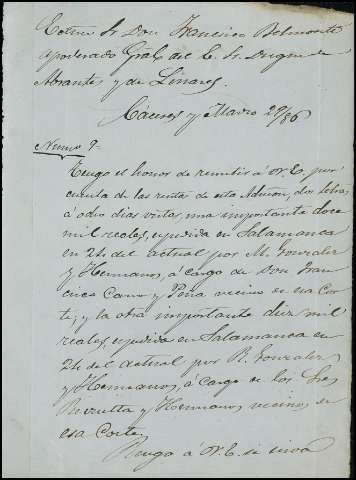 Exmo Sr Don Francisco Belmonte
apoderado Gral del E. Sr. Duque de
Abrantes y de Linares.
Cáceres y Marzo 29/86
Numo 9º
Tengo el honor de remitir á V.E. por
cuenta de las rentas de esta Admon, dos letras
á ocho dias vista; una importante doce
mil reales, espedida en Salamanca
en 24 del actual por M. Gonzalez
y Hermanos, á cargo de Don Fran-
cisco y Peña vecino en esa Cor-
te; y la otra importante diez mil
reales, espedida en Salamanca en
24 del actual por R. Gonzalez
y Hermanos, á cargo de los Sres
y Hermano, vecinos de
esa Corte.
Ruego á V.E. se sirva